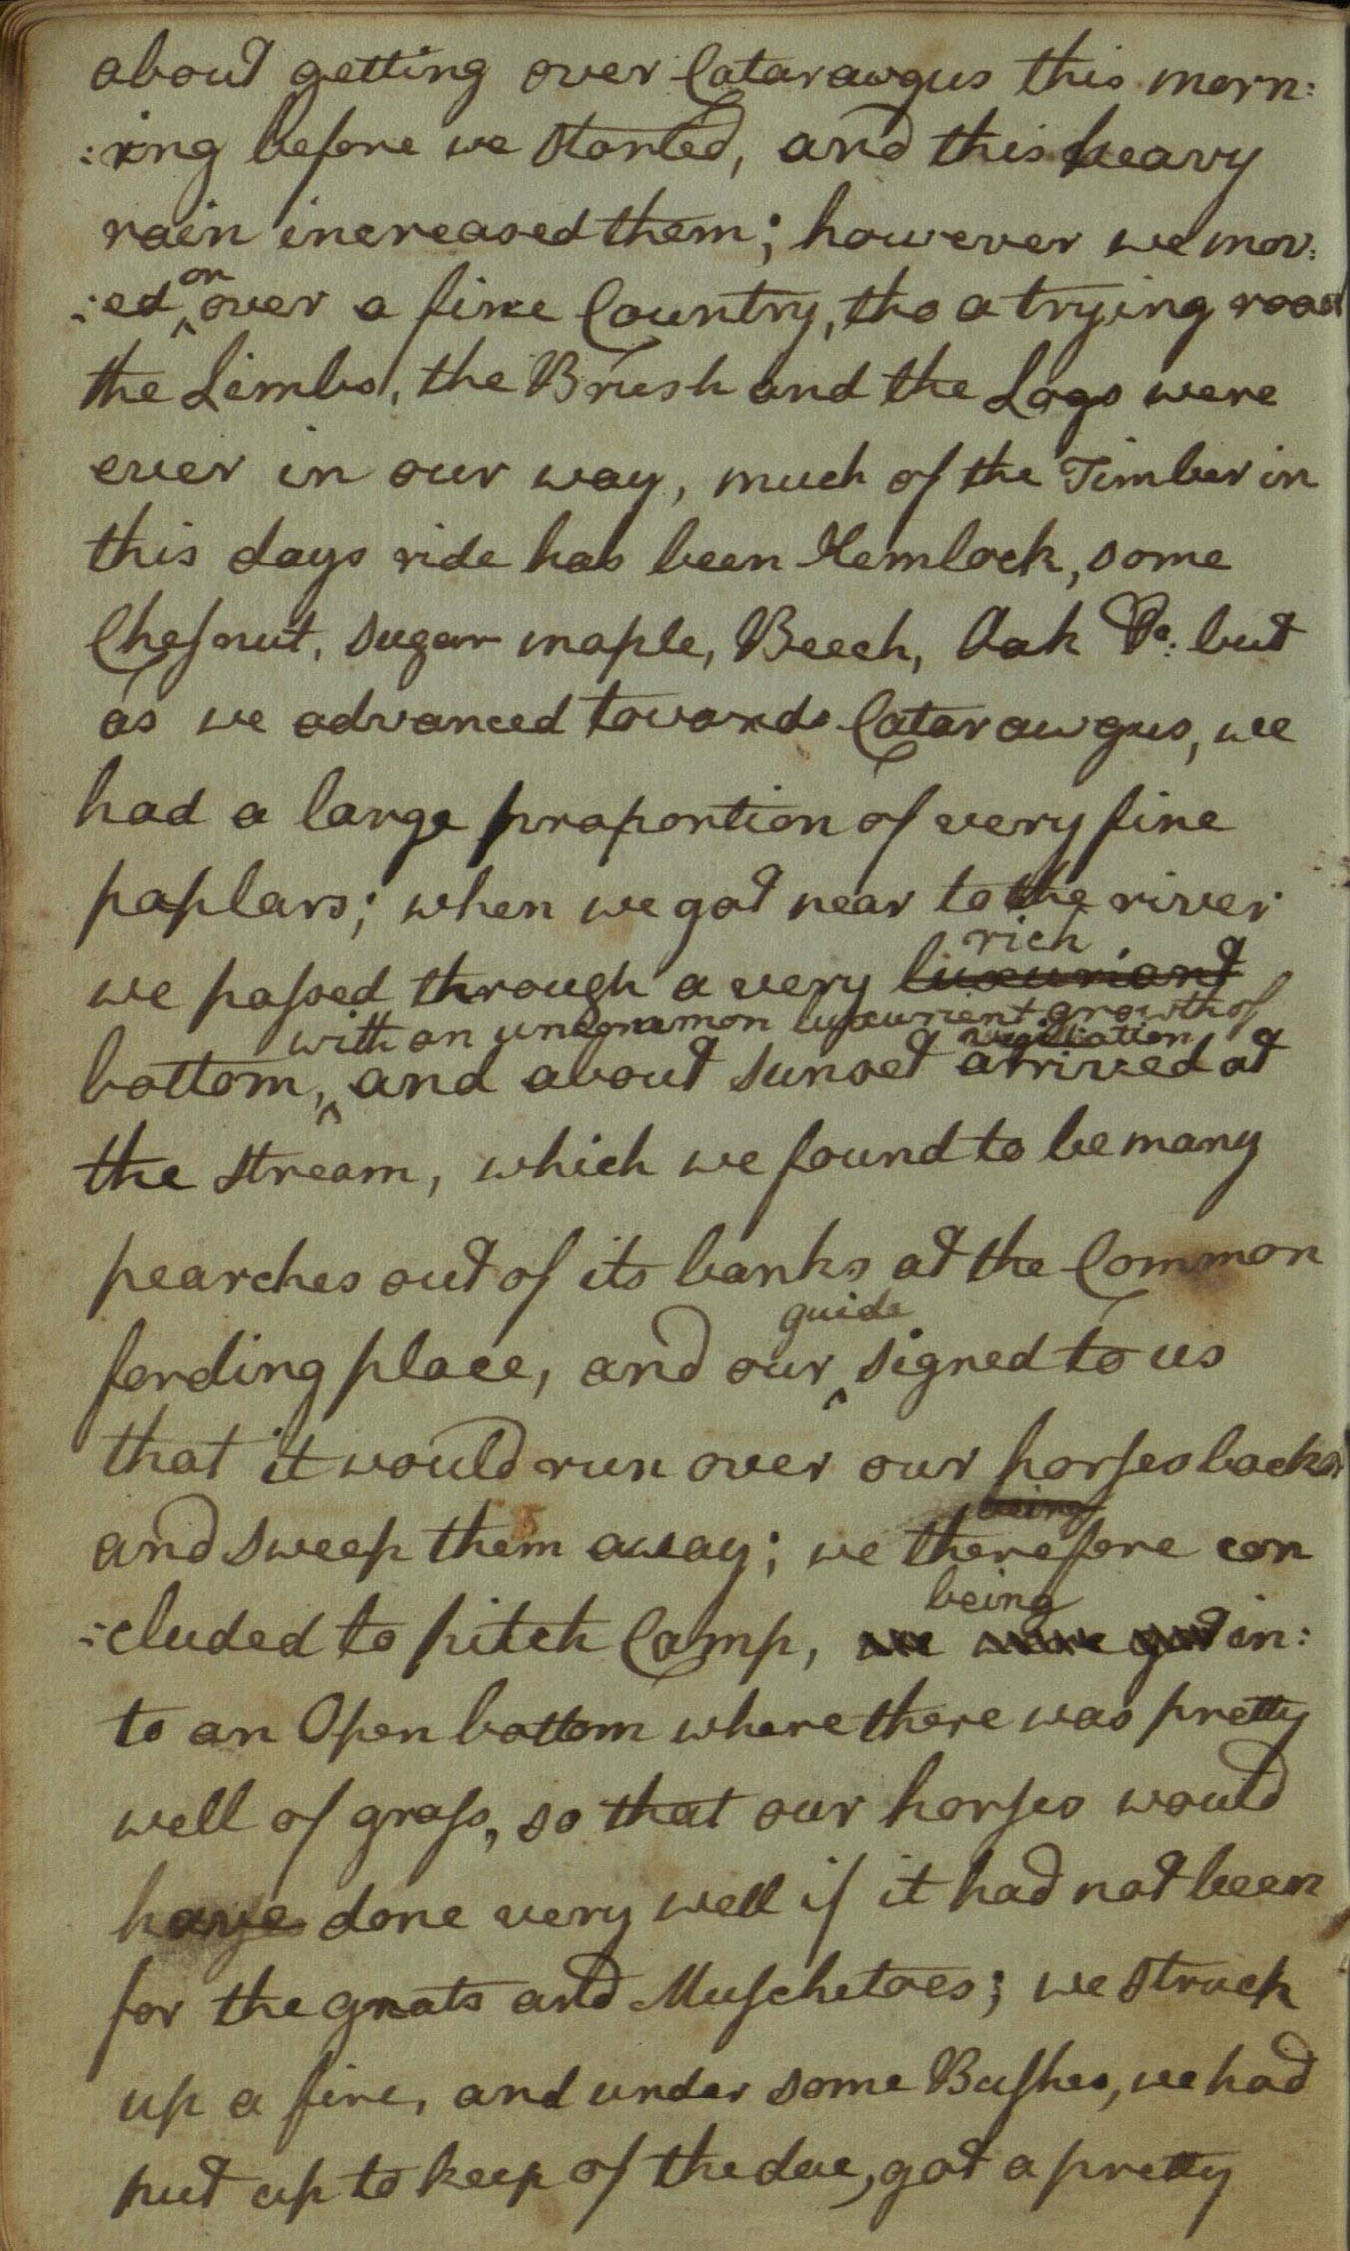 about getting over Catarawgus this morn:
:ing before we started, and this heavy
rain increased them; however we mov:
on
:ed over a fine Country, tho a trying road
the Limbs, the Brush and the Logs were
ever in our way, much of the Timber in
this days ride has been Hemlock, some
Chesnut, sugar maple, Beech, Oak &c: but
as we advanced towards Catarawgus, we
had a large proportion of very fine
poplars; when we got near to the river
rich
we passed through a very luxuriant
with an uncommon luxurient growth of
vegitation
bottom, and about sunset arrived at
the stream, which we found to be many
pearches out of its banks at the Common
guide
fording place, and our signed to us
that it would run over our horses backs
being
and sweep them away; we therefore con
being
:cluded to pitch Camp, we were got in:
to an Open bottom where there was pretty
well of grass, so that our horses would
have done very well if it had not been
for the gnats and Muschetoes; we struck
up a fire, and under some Bushes, we had
put up to keep of the due, got a pretty